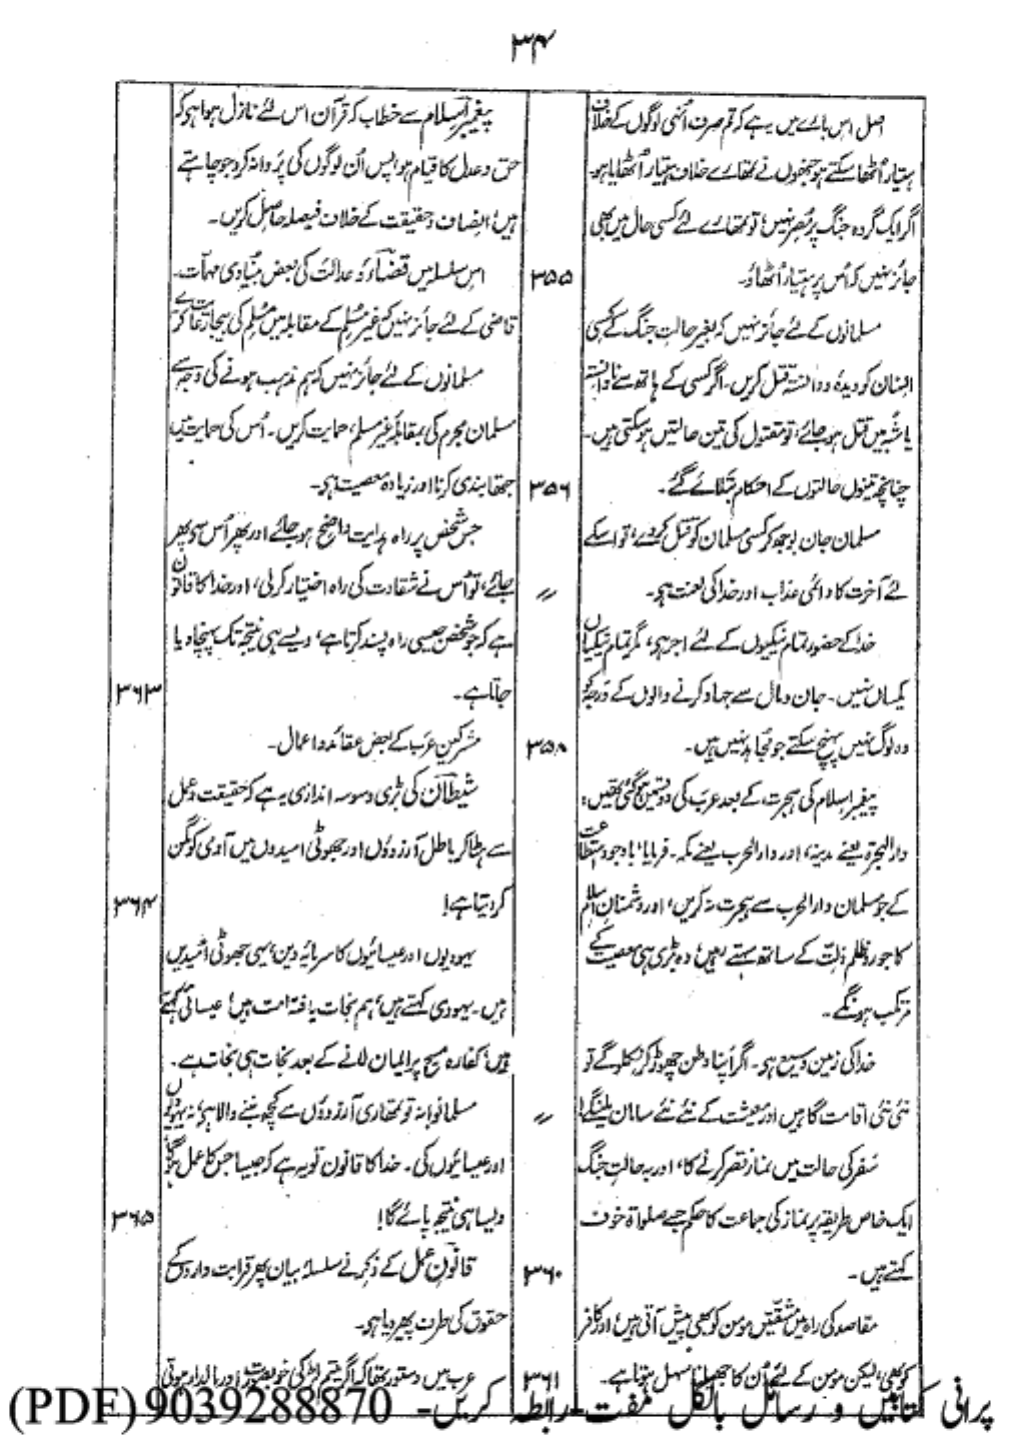 ۳۴
اصل اس بارے میں یہ ہے کہ تم صرف اُنہی لوگوں کے خلاف
ہتیار اُٹھا سکتے ہو جنھوں نے تمھارے خلاف ہتیار اُٹھایا ہو۔
اگر ایک گروہ جنگ پر مُصِر نہیں، تو تمھارے لئے کسی حال میں بھی
جائز نہیں کہ اُس پر ہتیار اُٹھاؤ۔ ۳۵۵
مسلمانوں کے لئے جائز نہیں کہ بغیر حالتِ جنگ کے کسی
انسان کو دیدہ و دانستہ قتل کریں۔ اگر کسی کے ہاتھ سے نادانستہ
یا شبہ میں قتل ہو جائے، تو مقتول کی تین حالتیں ہو سکتی ہیں۔
چنانچہ تینوں حالتوں کے احکام بتلائے گئے۔ ۳۵۶
مسلمان جان بوجھ کر کسی مسلمان کو قتل کردے، تو اسکے
لئے آخرت کا دائمی عذاب اور خدا کی لعنت ہی۔ ״
خدا کے حضور تمام نیکیوں کے لئے اجر ہی، مگر تمام نیکیاں
یکساں نہیں۔ جان و مال سے جہاد کرنے والوں کے درجہ کو
وہ لوگ نہیں پہنچ سکتے جو مجاہد نہیں ہیں۔ ۳۵۸
پیغمبر اسلام کی ہجرت کے بعد عرب کی دو قسمیں ہوگئی تھیں:
دار الہجرۃ یعنے مدینہ، اور دار الحرب یعنے مکہ۔ فرمایا، باوجود استطاعت
کے جو مسلمان دار الحرب سے ہجرت نہ کریں، اور دشمنانِ اسلام
کا جور و ظلم ذلّت کے ساتھ سہتے رہیں، وہ بڑی ہی معصیت کے
مرتکب ہونگے۔
خدا کی زمین وسیع ہی۔ اگر اپنا وطن چھوڑ کر نکلوگے تو
نئی نئی اقامت گاہیں اور معیشت کے نئے نئے سامان ملینگے! ״
سَفر کی حالت میں نماز قصر کرنے کا، اور بہ حالتِ جنگ
ایک خاص طریقہ پر نماز کی جماعت کا حکم جسے صلوٰۃ خوف
کہتے ہیں۔ ۳۶۰
مقاصد کی راہ میں مشقتیں مومن کو بھی پیش آتی ہیں، اور کافر
کو بھی، لیکن مومن کے لئے اُن کا جھیلنا سہل ہوتا ہے۔ ۳۶۱
پیغمبر اسلام سے خطاب کہ قرآن اس لئے نازل ہوا ہو کہ
حق و عدل کا قیام ہو، پس اُن لوگوں کی پروا نہ کرو جو چاہتے
ہیں، انصاف و حقیقت کے خلاف فیصلہ حاصل کریں۔
اس سلسلہ میں قضاء و عدالت کی بعض بنیادی مہمات۔
قاضی کے لئے جائز نہیں کہ غیر مسلم کے مقابلہ میں مُسلم کی بیجا رعایت کرے
مسلمانوں کے لئے جائز نہیں کہ ہم مذہب ہونے کی وجہ سے
مسلمان مجرم کی بمقابلۂ غیر مسلم، حمایت کریں۔ اُس کی حمایت میں
جتھا بندی کرنا اور زیادہ معصیت ہی۔
جس شخص پر راہ ہدایت واضح ہو جائے اور پھر اُس سی پھر
جائے، تو اُس نے شقاوت کی راہ اختیار کرلی، اور خدا کا قانون
ہے کہ جو شخص جیسی راہ پسند کرتا ہے، ویسے ہی نتیجہ تک پہنچا دیا
جاتا ہے۔ ۳۶۳
مشرکینِ عرب کے بعض عقائد و اعمال۔
شیطان کی بڑی وسوسہ اندازی یہ ہے کہ حقیقت و عمل
سے ہٹا کر باطل آرزوؤں اور جھوٹی امیدوں میں آدمی کو مگن
کر دیتا ہے! ۳۶۴
یہودیوں اور عیسائیوں کا سرمایۂ دین، یہی جھوٹی اُمیدیں
ہیں۔ یہودی کہتے ہیں، ہم نجات یافتہ امت ہیں! عیسائی کہتے
ہیں، کفارہ مسیح پر ایمان لانے کے بعد نجات ہی نجات ہے۔
مسلمانو! نہ تو تمھاری آرزوؤں سے کچھ بننے والا ہی، نہ یہودیوں
اور عیسائیوں کی۔ خدا کا قانون تو یہ ہے کہ جیسا جس کا عمل ہوگا
ویسا ہی نتیجہ پائے گا! ۳۶۵
قانونِ عمل کے ذکر نے سلسلۂ بیان پھر قرابت داروں کے
حقوق کی طرف پھیر دیا ہی۔
عرب میں دستور تھا کہ اگر یتیم لڑکی خوبصورت اور مالدار ہوتی
پرانی کتابیں و رسائل بالکل مفت۔رابطہ کریں۔ 9039288870 (PDF)